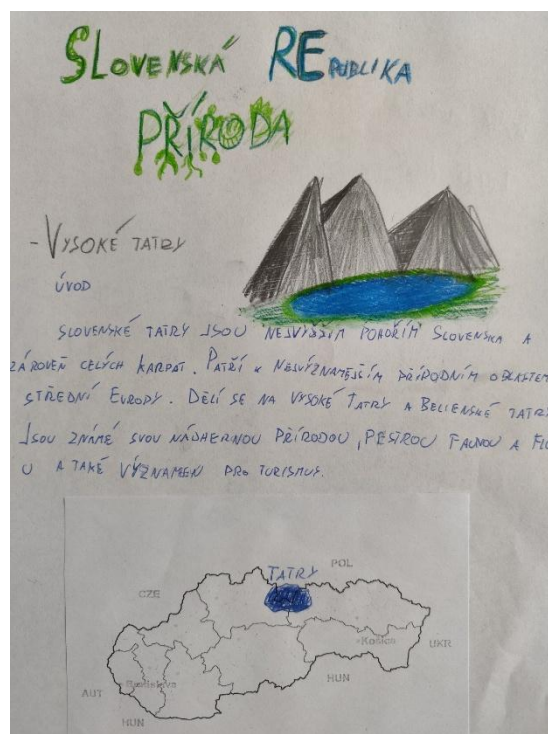 SLOVENSKÁ REPUBLIKA
PŘÍRODA
- VYSOKÉ TATRY
ÚVOD
SLOVENSKÉ TATRY JSOU NEJVYŠŠÍM POHOŘÍM SLOVENSKA A
ZÁROVEŇ CELÝCH KARPAT. PATŘÍ K NEJVÝZNAMEJŠÍM PŘÍRODNÍM OBLASTEM
STŘEDNÍ EVROPY. DĚLÍ SE NA VYSOKÉ TATRY A BELIENSKÉ TATRY
JSOU ZNÁMÉ SVOU NÁDHERNOU PŘÍRODOU, PESTROU FAUNOU A FLO
U A TAKÉ VÝZNAMEN PRO TURISMUS.
TATRY
POL
CZE
Košice
UKR
AUT
Bratislava
HUN
HUN